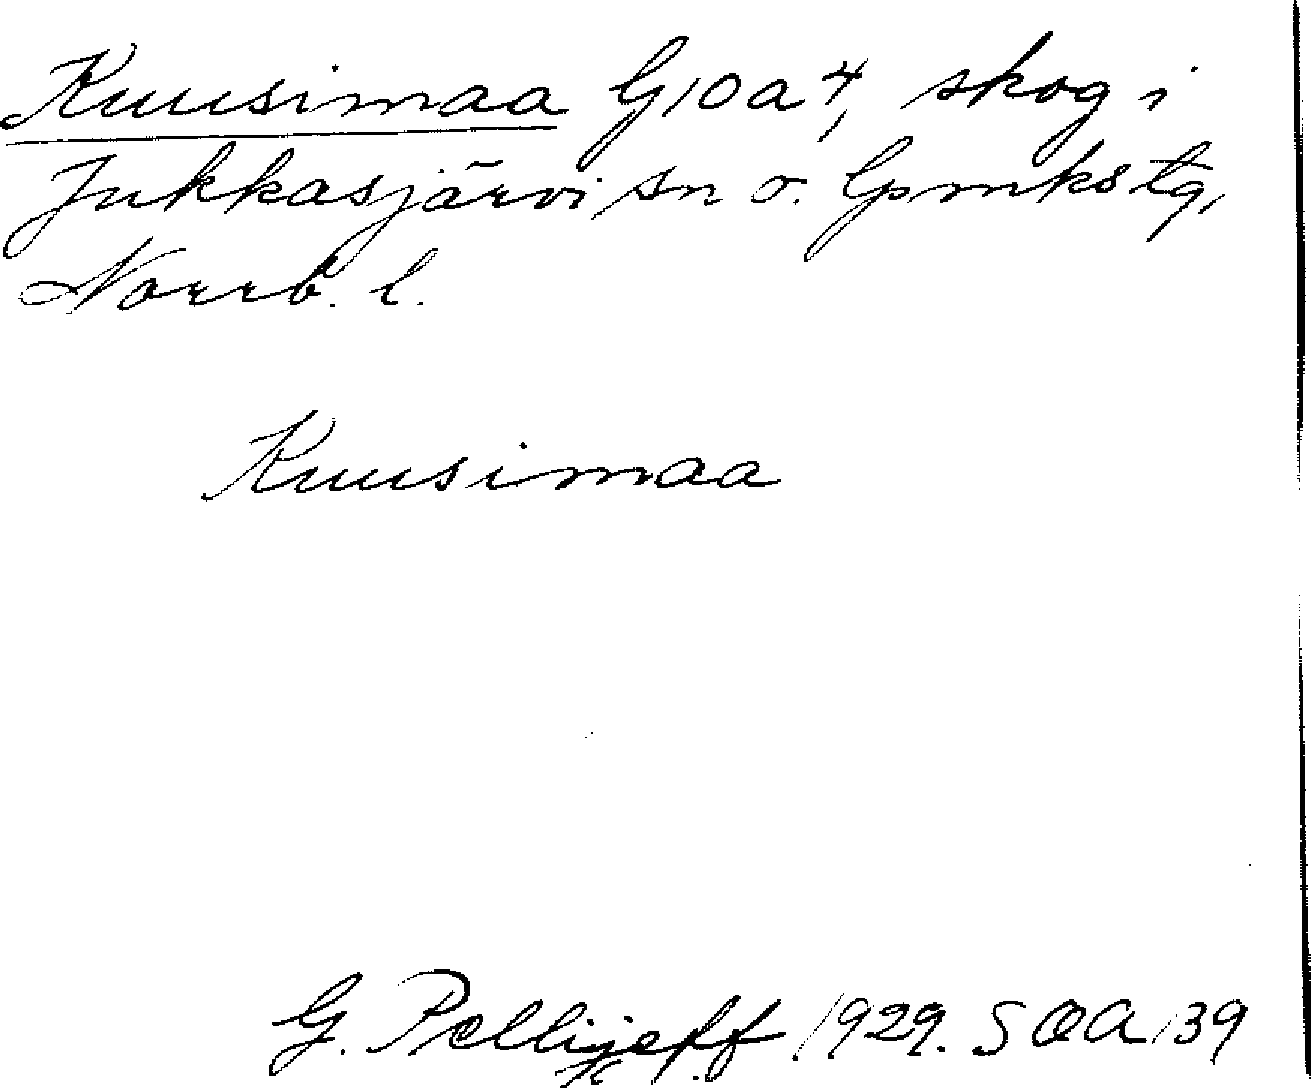 Kuusimaa G10a4, skog i
Jukkasjärvi sn o. lpmkstg,
Norrb. l.
Kuusimaa
G. Pellijeff 1929. SOA 139